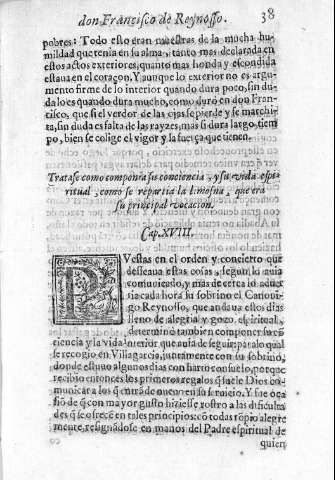 don Francisco de Reynosso. 38
pobres: Todo esto eran muestras de la mucha hu-
mildad que tenia en su alma, tanto mas declarada en
estos actos exteriores, quanto mas honda y escondida
estaua en el coraçon. Y aunque lo exterior no es argu-
mento firme de lo interior quando dura poco, sin du-
da lo es quando dura mucho, como duró en don Fran-
cisco, que si el verdor de las ojas se pierde y se marchi-
ta, sin duda es falta de las rayzes, mas si dura largo, tiem
po, bien se colige el vigor y la fuerça que tienen.
Tratase como componia su conciencia, y su vida espi-
ritual, como se repartia la limosna, que era
su principal vocacion.
Cap. XVIII.
PVestas en el orden y concierto que
desseaua estas cosas, segun lo auia
comunicado, y mas de cerca lo aduer
tia cada hora su sobrino el Canoni-
go Reynosso, que andaua estos dias
lleno de alegria y gozo espiritual,
determinó tambien componer su cõ
ciencia y la vida interior que auia de seguir: para lo qual
se recogio en Villagarcia, juntamente con su sobrino,
donde estuuo algunos dias con harto consuelo, porque
recibio entonces los primeros regalos q̃ suele Dios co-
municar a los q̃ entrã de nueuo en su seruicio. Y fue oca
siõ de q̃ con mayor gusto hiziesse rostro a las dificulta
des q̃ se ofrecẽ en tales principios: cõ todas rõpio alegre
mente, resignãdose en manos del Padre espiritual de
quien